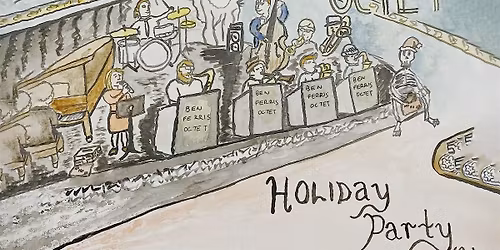 OCTET
BEN
FERRIS
OCTET
BEN
FERRIS
OCTET
BEN
FERRIS
OCTET
BEN
FERRIS
OCTET
HOLIDAY
Party